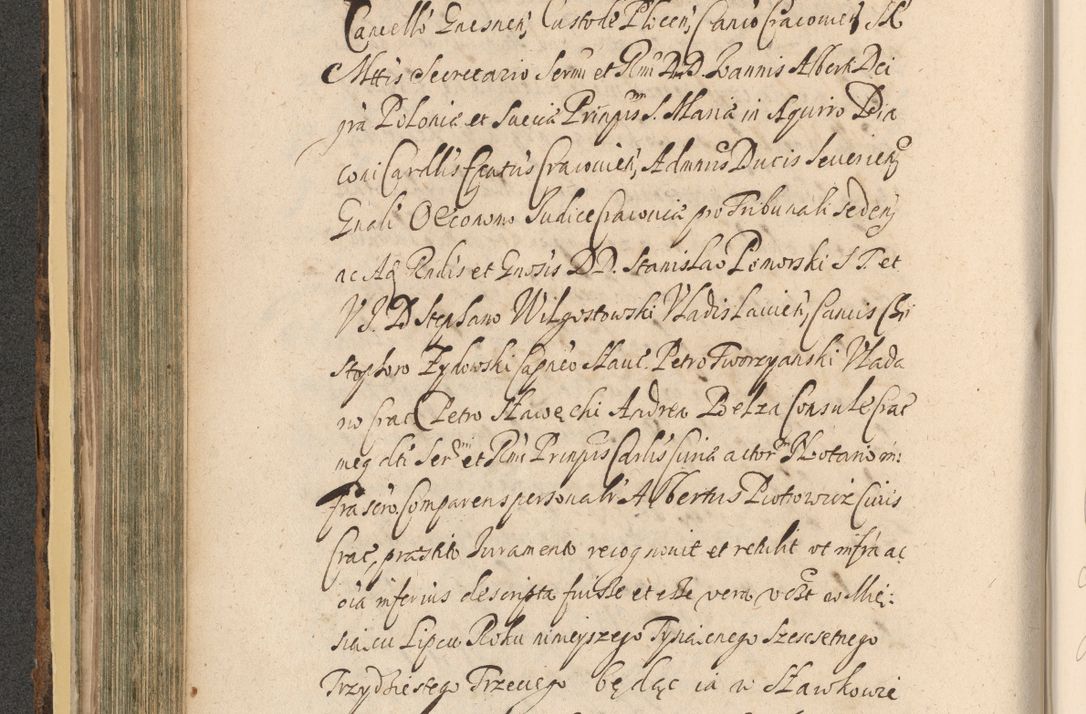 Cancello Gnesnen, Custode Plocen, Canco Cracovien S R
Mttis Secretario Sermi et Rmi D.D. Ioannis Alberti Dei
gra Poloniæ et Sueciæ Prinpis S. Mariæ in Aquiro Dia
coni Cardlis Epatus Cracovien, Admnris Ducis Severien
Gnali Oeconomo Iudice Cracoviæ pro Tribunali seden,
ac Adq Rndis et Gnosis D D. Stanislao Pomorski S T. et
V I. D Stephano Wilgostowski Vladislavien, Cancis Chri
stophoro Zydowski Capneo Slavc. Petro Tworzyanski Vlada
no Crac Petro Sławęcki Andrea Pełza Consule Crac
meq dti Sermi et Rmi Prinpis Cardlis Curiæ actor Notario in:
frascro. Comparens personalr Albertus Piotrowicz Civis
Crac, præstito Iuramento recognovit et retulit ut infra ac
oia inferius descripta fuisse et esse vera, vdzt w Mię:
siącu Lipcu Roku ninieyszego Tysiącnego Szescsetnego
Trzydziestego Trzeciego będąc ia w Sławkowie